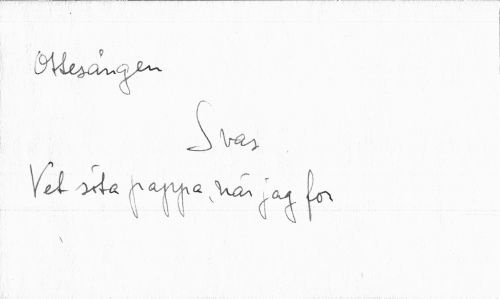 Ottesången
Svas
Vet söta pappa, när jag for